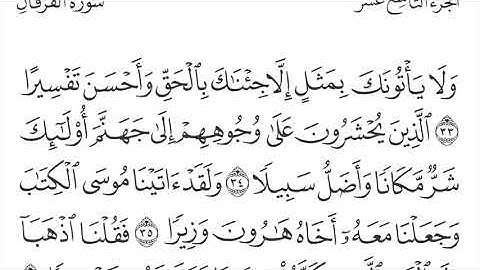 سورة الفرقان الجزء التاسع عشر
وَلَا يَأۡتُونَكَ بِمَثَلٍ إِلَّا جِئۡنَٰكَ بِٱلۡحَقِّ وَأَحۡسَنَ تَفۡسِيرًا
٣٣ ٱلَّذِينَ يُحۡشَرُونَ عَلَىٰ وُجُوهِهِمۡ إِلَىٰ جَهَنَّمَ أُوْلَٰٓئِكَ
شَرّٞ مَّكَانٗا وَأَضَلُّ سَبِيلٗا ٣٤ وَلَقَدۡ ءَاتَيۡنَا مُوسَى ٱلۡكِتَٰبَ
وَجَعَلۡنَا مَعَهُۥٓ أَخَاهُ هَٰرُونَ وَزِيرٗا ٣٥ فَقُلۡنَا ٱذۡهَبَآ